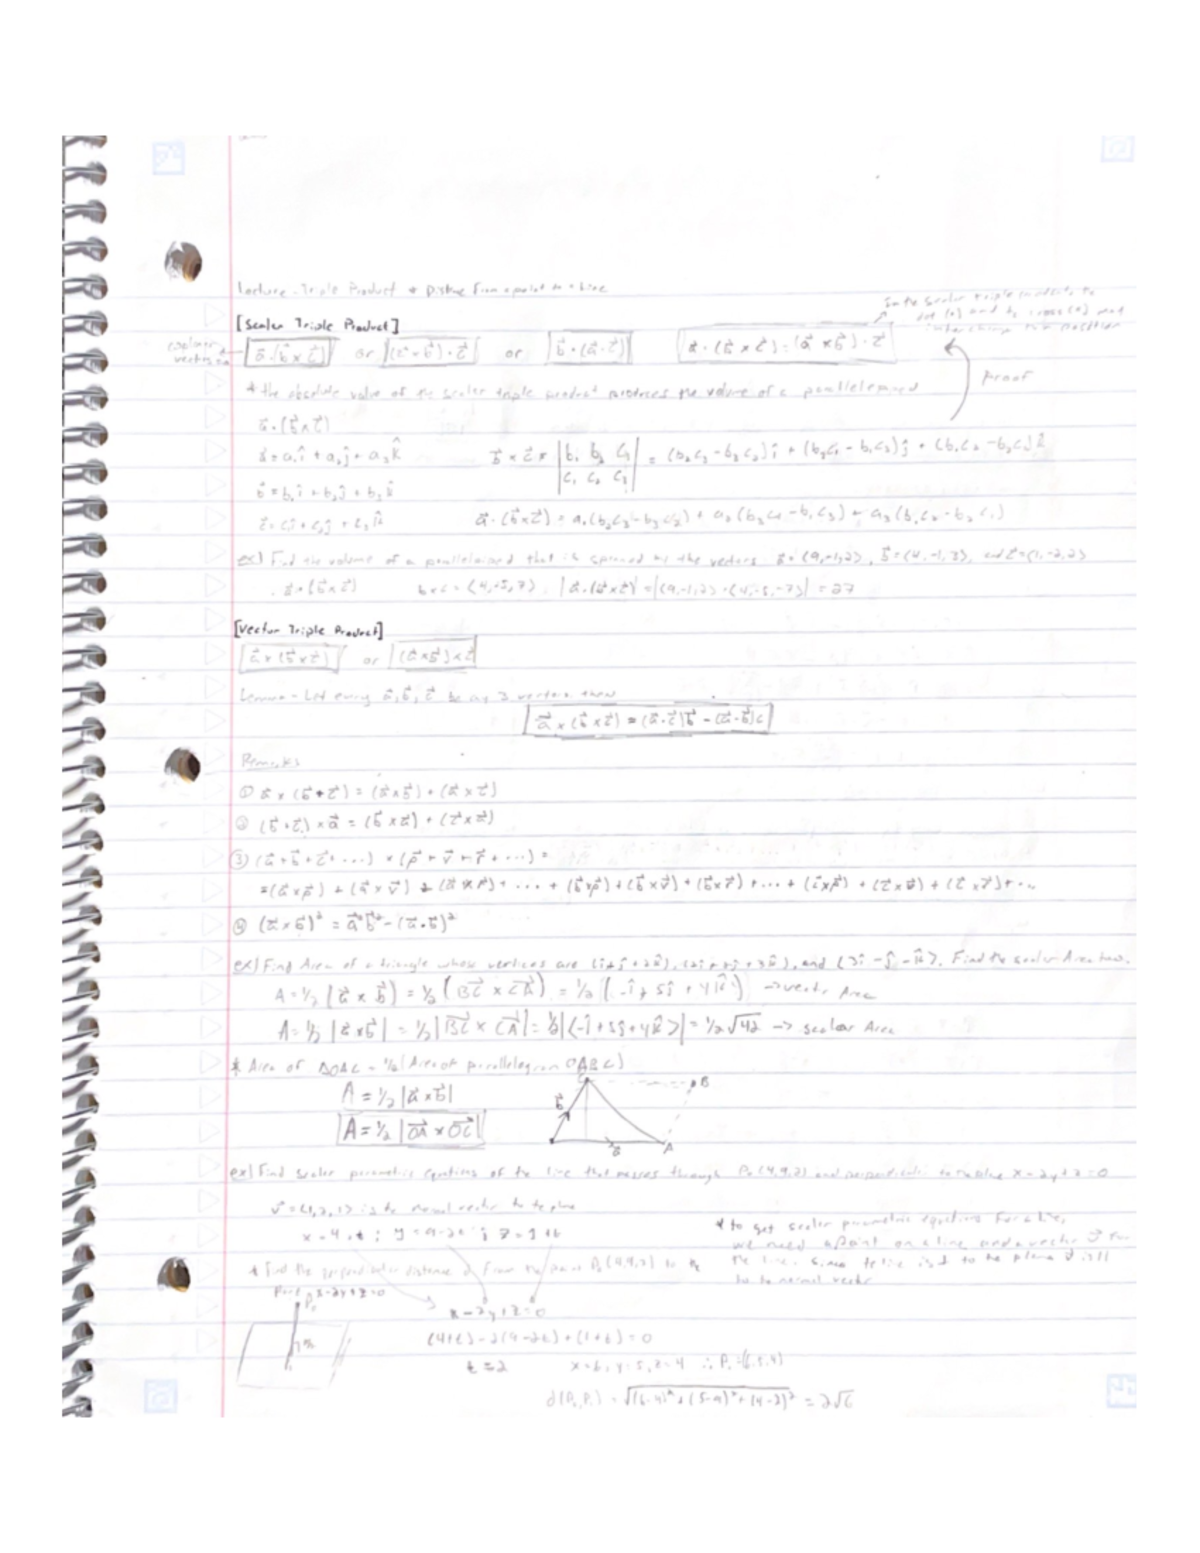 Lecture - Triple Product & Distance from a point to a Line
In the scalar triple products the
dot [•] and the cross [x] may
interchange their position
[Scaler Triple Product]
coplaner vectors =0 a⃗·(b⃗ × c⃗) or (c⃗ × b⃗)·c⃗ or b⃗·(a⃗·c⃗) a⃗·(b⃗ × c⃗) = (a⃗ × b⃗)·c⃗
Proof
* the absolute value of the scaler triple product produces the volume of a parallelepiped
a⃗·(b⃗×c⃗)
a⃗ = a₁î + a₂ĵ + a₃k̂ b⃗ × c⃗ = |b₁ b₂ c₃| = (b₂c₃ - b₃c₂)î + (b₃c₁ - b₁c₃)ĵ + (b₁c₂ - b₂c₁)k̂
|c₁ c₂ c₃|
b⃗ = b₁î + b₂ĵ + b₃k̂
c⃗ = c₁î + c₂ĵ + c₃k̂ a⃗·(b⃗×c⃗) = a₁(b₂c₃ - b₃c₂) + a₂(b₃c₁ - b₁c₃) + a₃(b₁c₂ - b₂c₁)
ex) Find the volume of a that is spanned by the vectors a⃗ = (9,-1,2), b⃗ = (4,-1,3), and c⃗ = (1,-2,2)
a⃗·(b⃗×c⃗) b×c = (4,-5,7) |a⃗·(b⃗×c⃗)| = |(9,-1,2)·(4,-5,-7)| = 27
[Vector Triple Product]
a⃗ × (b⃗ × c⃗) or (a⃗ × b⃗) × c⃗
Lemma - Let every a⃗, b⃗, c⃗ be any 3 vectors then
a⃗ × (b⃗ × c⃗) = (a⃗·c⃗)b⃗ - (a⃗·b⃗)c
Remarks
① a⃗ × (b⃗ + c⃗) = (a⃗ × b⃗) + (a⃗ × c⃗)
② (b⃗ + c⃗) × a⃗ = (b⃗ × a⃗) + (c⃗ × a⃗)
③ (a⃗ + b⃗ + c⃗ + ...) × (p⃗ + v⃗ + r⃗ + ...) =
= (a⃗ × p⃗) + (a⃗ × v⃗) + (a⃗ × r⃗) + ... + (b⃗ × p⃗) + (b⃗ × v⃗) + (b⃗ × r⃗) + ... + (c⃗ × p⃗) + (c⃗ × v⃗) + (c⃗ × r⃗) + ...
④ (a⃗ × b⃗)² = a⃗²b⃗² - (a⃗·b⃗)²
ex) Find Area of a triangle whose vertices are (î + ĵ + 2k̂), (2î + ĵ + 3k̂), and (3î - ĵ - k̂). Find the scaler Area too.
A = 1/2 (a⃗ × b⃗) = 1/2 (BC × CA) = 1/2 (-î + 5ĵ + 4k̂) → vector Area
A = 1/2 |a⃗ × b⃗| = 1/2 |BC × CA| = 1/2 |(-î + 5ĵ + 4k̂)| = 1/2 √42 → scalar Area
* Area of ΔOAC = 1/2 (Area of parallelogram OABC)
A = 1/2 |a⃗ × b⃗|
A = 1/2 |OA × OC|
C B b⃗ a⃗ A
ex) Find scaler parametric equations of the line that passes through P₀(4,9,2) and perpendicular to the plane x - 2y + z = 0
v⃗ = (1,2,1) is the normal vector to the plane
x = 4 + t ; y = 9 - 2t ; z = 1 + t
* to get scaler parametric equations for a line,
we need a point on a line and a vector v⃗ for
the line. Since the line is ⊥ to the plane v⃗ is ll
to to normal vector
* Find the perpendicular distance d from the point P₀(4,9,2) to the
x - 2y + z = 0
P₀
x - 2y + z = 0
(4+t) - 2(9-2t) + (1+t) = 0
t = 2 x = 6, y = 5, z = 4 ∴ P₁ = (6,5,4)
d(P₀,P₁) = √(6-4)² + (5-9)² + (4-2)² = 2√6